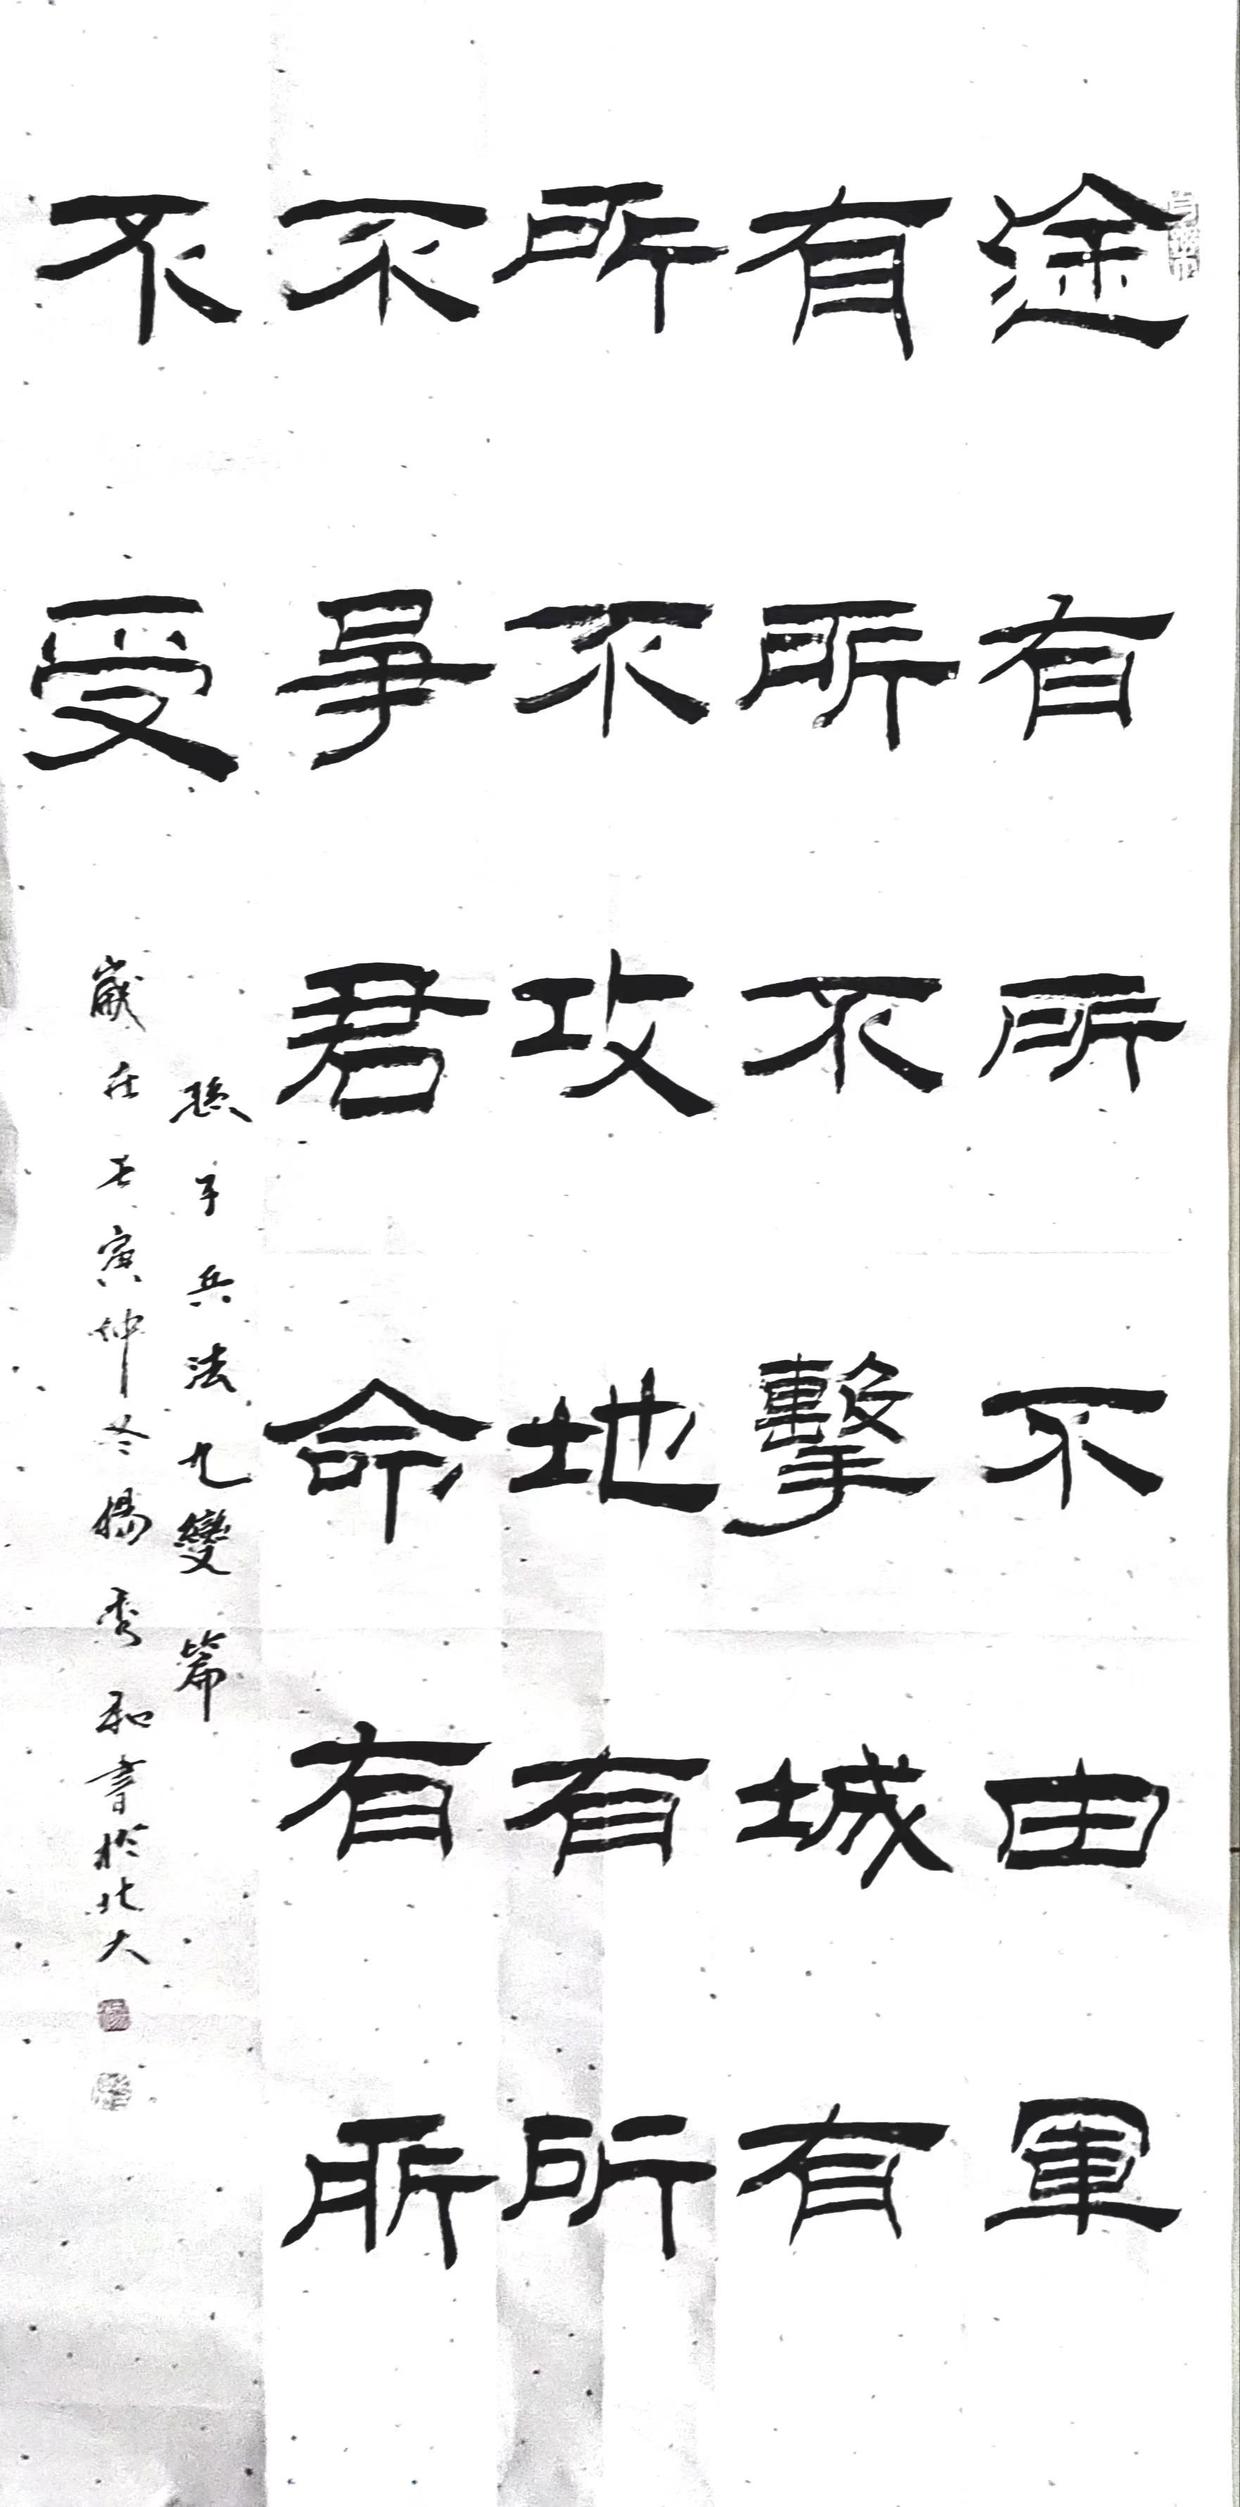 途有所不由軍
有所不擊城有
所不攻地有所
不爭君命有所
不受
孫子兵法九變篇
歲在壬寅仲冬楊秀和書於北大